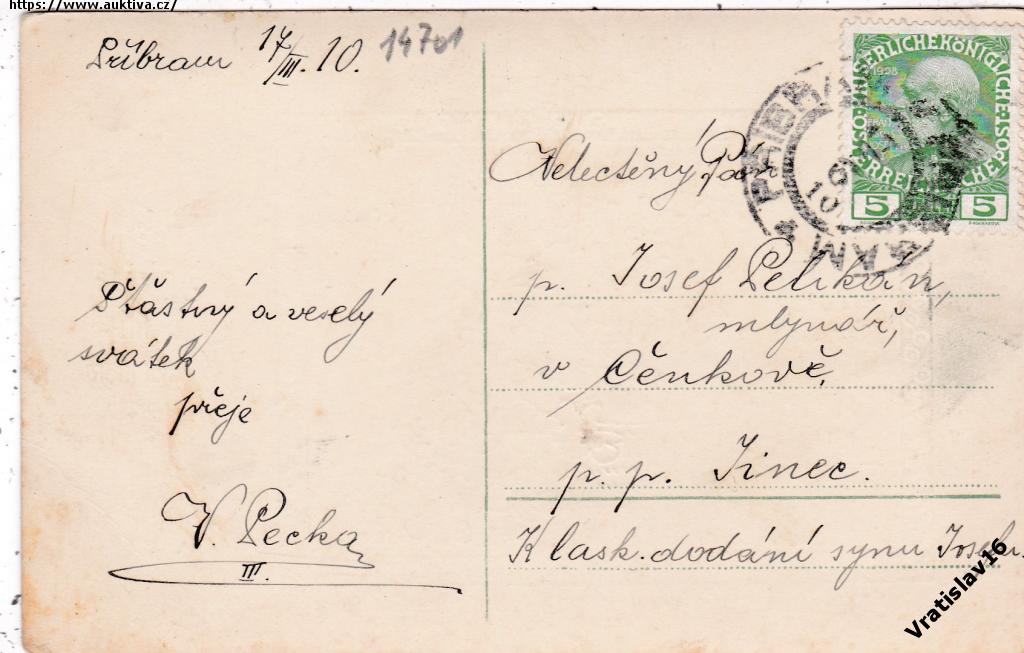 https://www.auktiva.cz/
Příbram 17/III. 10.
14701
Šťastný a veselý
svátek
přeje
V. Pecka
III.
KAISERLICHE KÖNIGLICHE
ÖSTERREICHISCHE POST
1908
5 5
Velectěný Pán
p. Josef Pelikán,
mlynář,
v Čenkově,
p. p. Jinec.
K lask. dodání synu Josefu.
Vratislav16